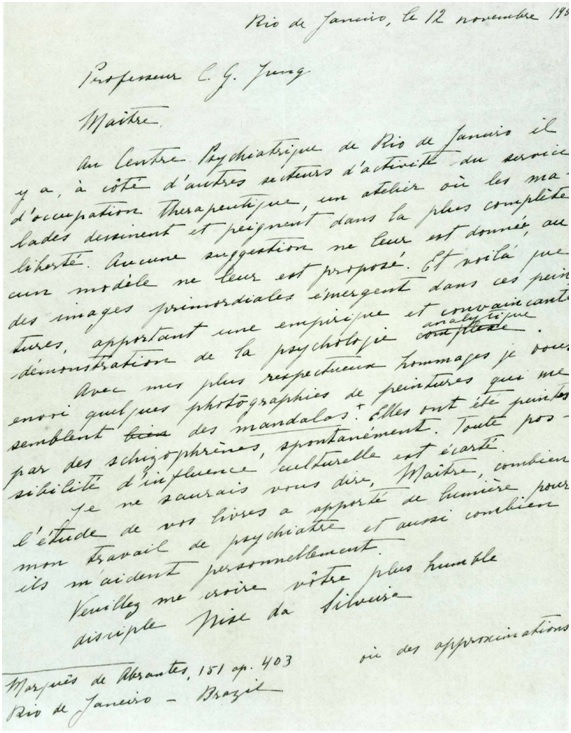 Rio de Janeiro, le 12 novembre 195
Professeur C. G. Jung
Maître.
Au Centre Psychiatrique de Rio de Janeiro il
y a, à côté d'autres secteurs d'activité du service
d'occupation therapeutique, un atelier où les ma-
lades dessinent et peignent dans la plus complète
liberté. Aucune suggestion ne leur est donnée, au
cun modèle ne leur est proposé. Et voilà que
des images primordiales émergent dans ces pein
tures, apportant une empirique et convaincante
démonstration de la psychologie complexe analytique.
Avec mes plus respectueux hommages je vous
envoi quelques photographies de peintures qui me
semblent bien des mandalas*. Elles ont été peintes
par des schizophrènes, spontanément. Toute pos-
sibilité d'influence culturelle est écarté.
Je ne saurais vous dire, Maître, combien
l'étude de vos livres a apporté de lumière pour
mon travail de psychiatre et aussi combien
ils m'aident personnellement.
Veuillez me croire vôtre plus humble
disciple Nise da Silveira
ou des approximations
Marquês de Abrantes, 151 ap. 403
Rio de Janeiro – Brazil